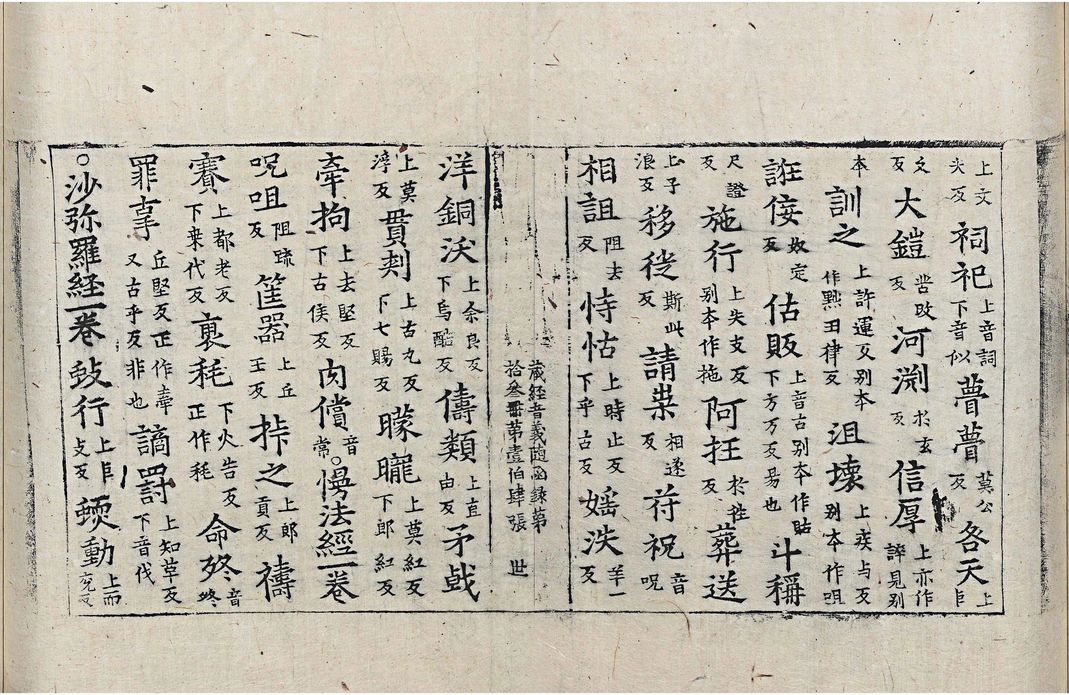 上文尖反祠祀上音詞下音似瞢瞢莫公反各天上巨
文反大鎧苦改反河渊於玄反信厚上亦作𧫒見別
本訓之上許運反別本作黙田律反沮壊上疾与反別本作咀
誑佞奴定反估販上音古別本作貼下方万反昜也斗稱
尺證反施行上失支反別本作拖阿抂於往反葬送
上子浪反移徙斯此反請祟相遂反苻祝音呪
相詛阻去反恃怙上時止反下乎古反婬泆羊一反
藏經音義随函録第拾叁冊第壹伯肆張 世
洋銅沃上余良反下烏酷反儔類上直由反矛戟
上莫浮反貫刾上古丸反下七賜反矇矓上莫紅反下郎紅反
牽拘上去堅反下古侯反肉償音常○慢法經一卷
呪咀阻疏反筐器上丘王反挵之上郎貢反禱
賽上都老反下桒代反裹秏下火告反正作耗命終音終
罪辜丘堅反正作牽又古乎反非也謫罸上知革反下音伐
○沙弥羅經一卷蚑行上巨支反蝡動上而兖反